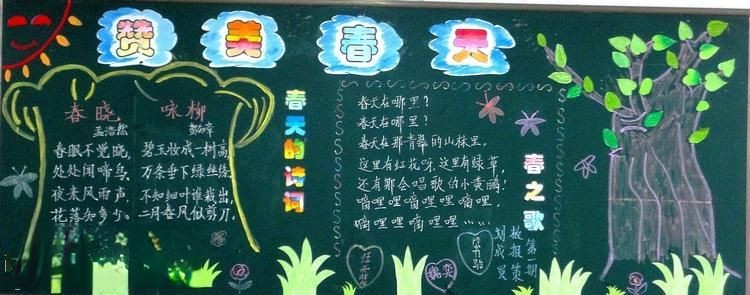 赞美春天
春晓
孟浩然
春眠不觉晓，
处处闻啼鸟。
夜来风雨声，
花落知多少。
咏柳
贺知章
碧玉妆成一树高，
万条垂下绿丝绦。
不知细叶谁裁出，
二月春风似剪刀。
春天的诗词
春天在哪里？
春天在哪里？
春天在那青翠的山林里。
这里有红花呀，这里有绿草，
还有那会唱歌的小黄鹂！
嘀哩哩嘀哩嘀哩哩，
嘀哩哩嘀哩哩……
春之歌
第一期
板报策
划成员
魏奕